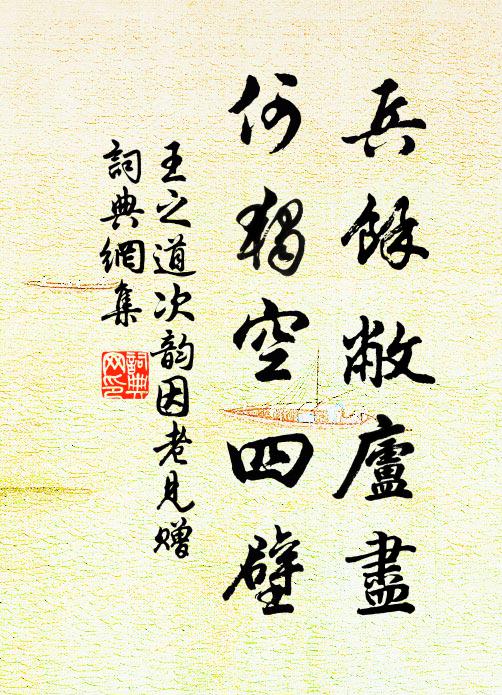 兵餘敝廬盡
何獨空四壁
王之道次韵因老見贈
詞典網集
詞典网印